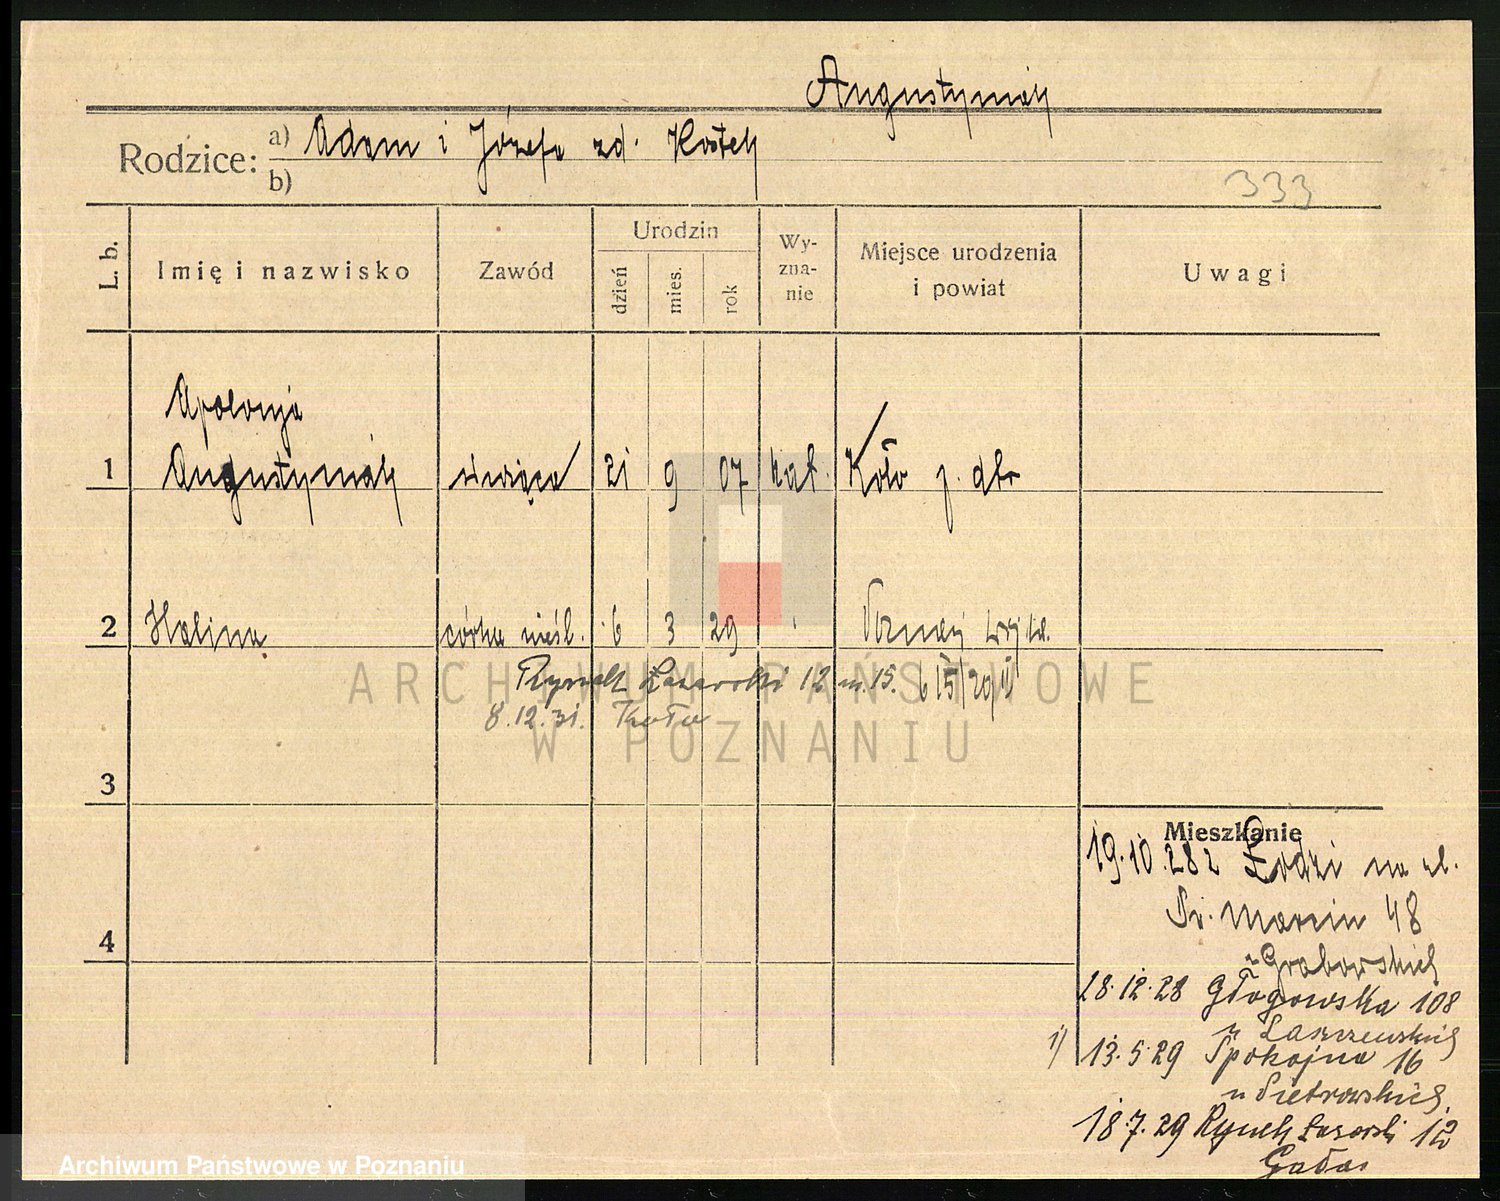 Augustyniak
Rodzice: a) Adam i Józefa zd. Kostek
b)
333
L. b. Imię i nazwisko Zawód Urodzin dzień mies. rok Wy-zna-nie Miejsce urodzenia i powiat Uwagi
Apolonja
1 Augustyniak 21 9 07 kat. Koło p.
2 Halina córka nieśl. 6 3 29 Poznań
Rynek Łazarski 12 m. 15.
8.12.31. Koło
3
4
Mieszkanie
19.10.28 z Łodzi na ul.
Św. Marcin 48
u Grabowskich
28.12.28 Głogowska 108
u Laszzewskich
1) 13.5.29 Spokojna 16
u Pietrowskich
18.7.29 Rynek Łazarski 12
ARCHIWUM PAŃSTWOWE
W POZNANIU
Archiwum Państwowe w Poznaniu